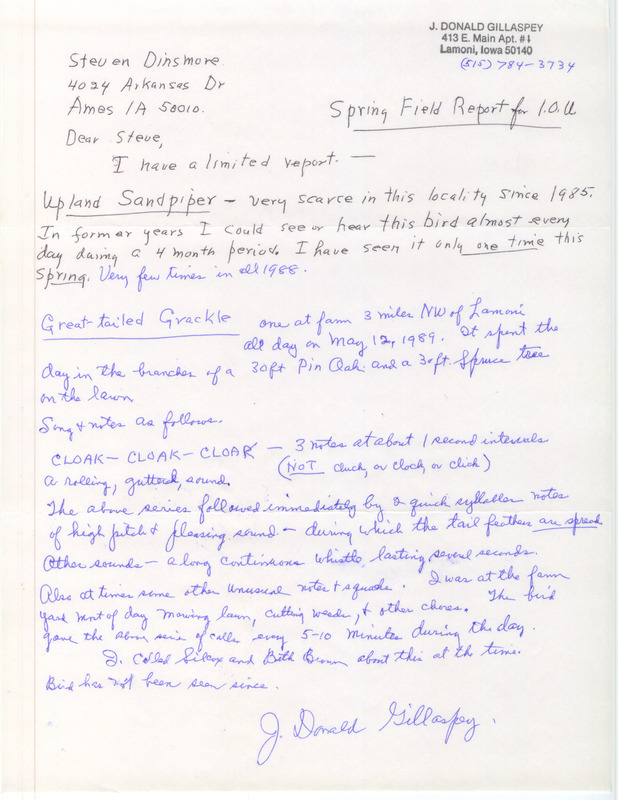 J. DONALD GILLASPEY
413 E. Main Apt. #1
Lamoni, Iowa 50140
(515) 784-3734
Steven Dinsmore
4024 Arkansas Dr
Ames IA 50010.
Spring Field Report for I.O.U
Dear Steve,
I have a limited report. —
Upland Sandpiper - very scarce in this locality since 1985.
In former years I could see or hear this bird almost every
day during a 4 month period. I have seen it only one time this
Spring. Very few times in all 1988.
Great-tailed Grackle one at farm 3 miles NW of Lamoni
all day on May 12, 1989. It spent the
day in the branches of a 30ft Pin Oak and a 30ft. Spruce tree
on the lawn
Song & notes as follows.
CLOAK - CLOAK - CLOAK - 3 notes at about 1 second intervals
(NOT cluck, or clock, or click)
a rolling, guttural, sound.
The above series followed immediately by 2 quick syllables notes
of high pitch & pleasing sound. - during which the tail feathers are spread
Other sounds - a long continuous whistle lasting several seconds.
Also at times some other unusual notes & squawks. I was at the farm
yard most of day mowing lawn, cutting weeds, & other chores. The bird
gave the above series of calls every 5-10 minutes during the day.
I called Silcox and Beth Brown about this at the time.
Bird has not been seen since.
J. Donald Gillaspey.